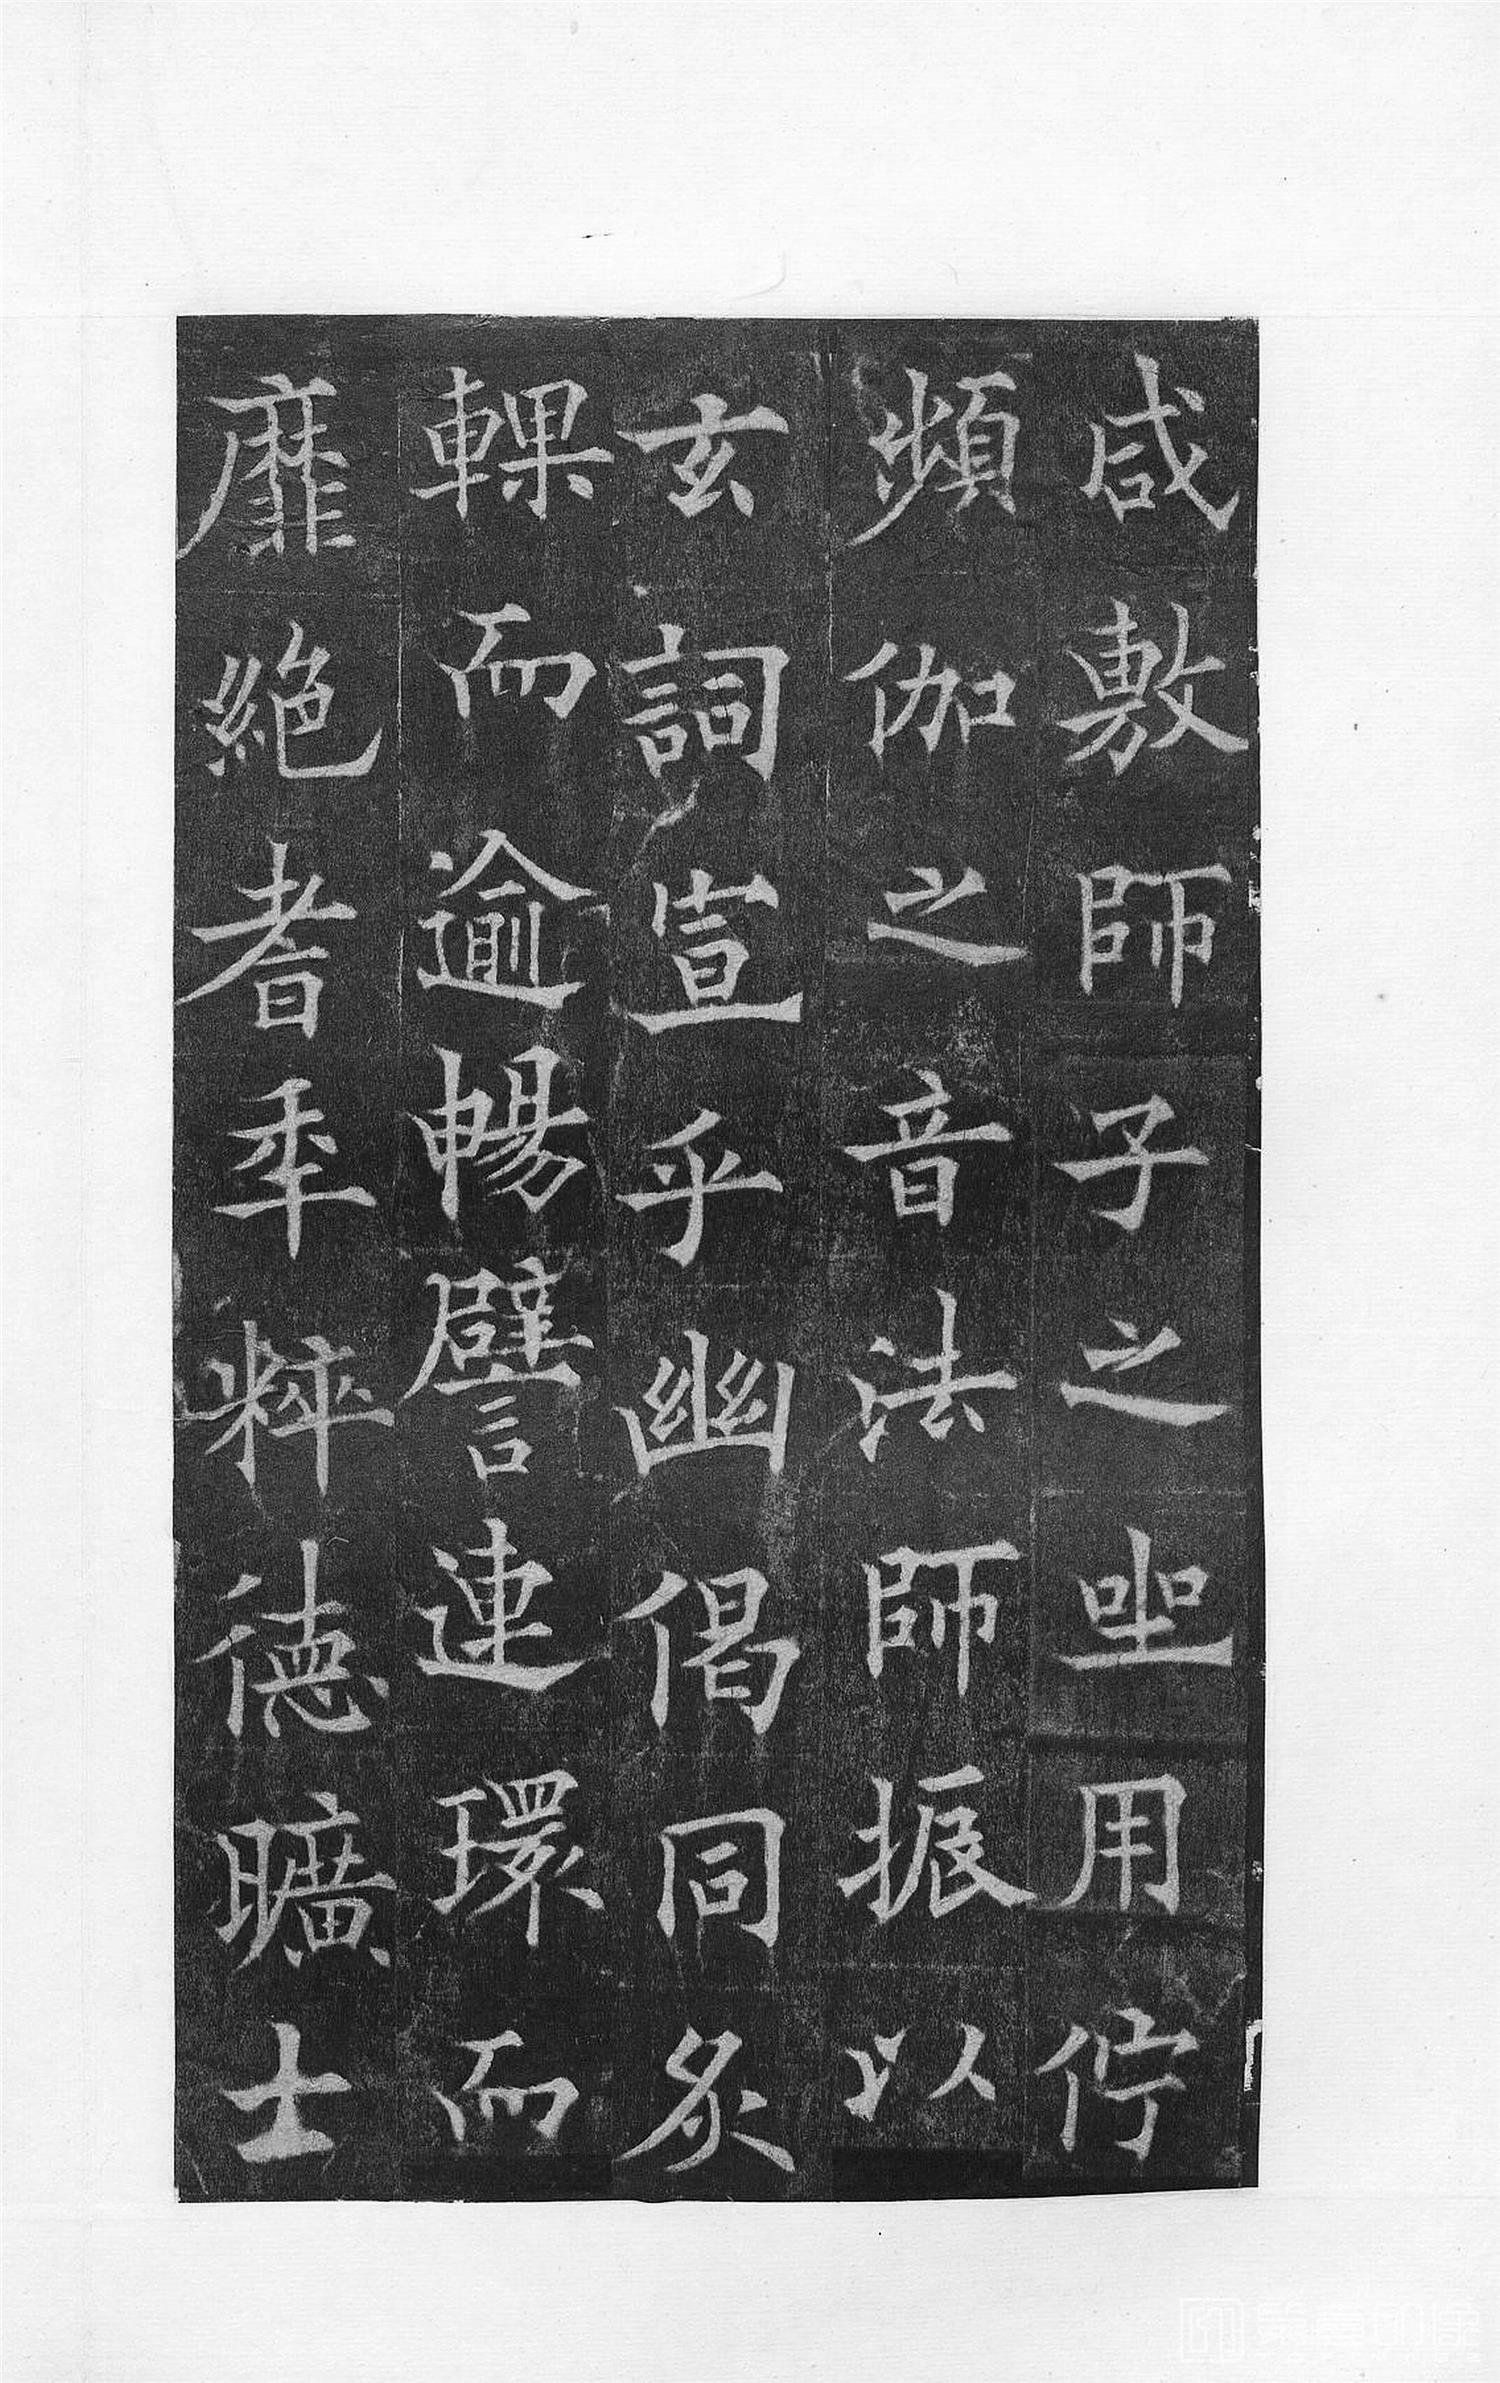 咸敷師子之㘴用佇
頻伽之音法師振以
玄詞宣乎幽偈同炙
輠而逾暢譬連環而
靡絶耆年粹德曠士